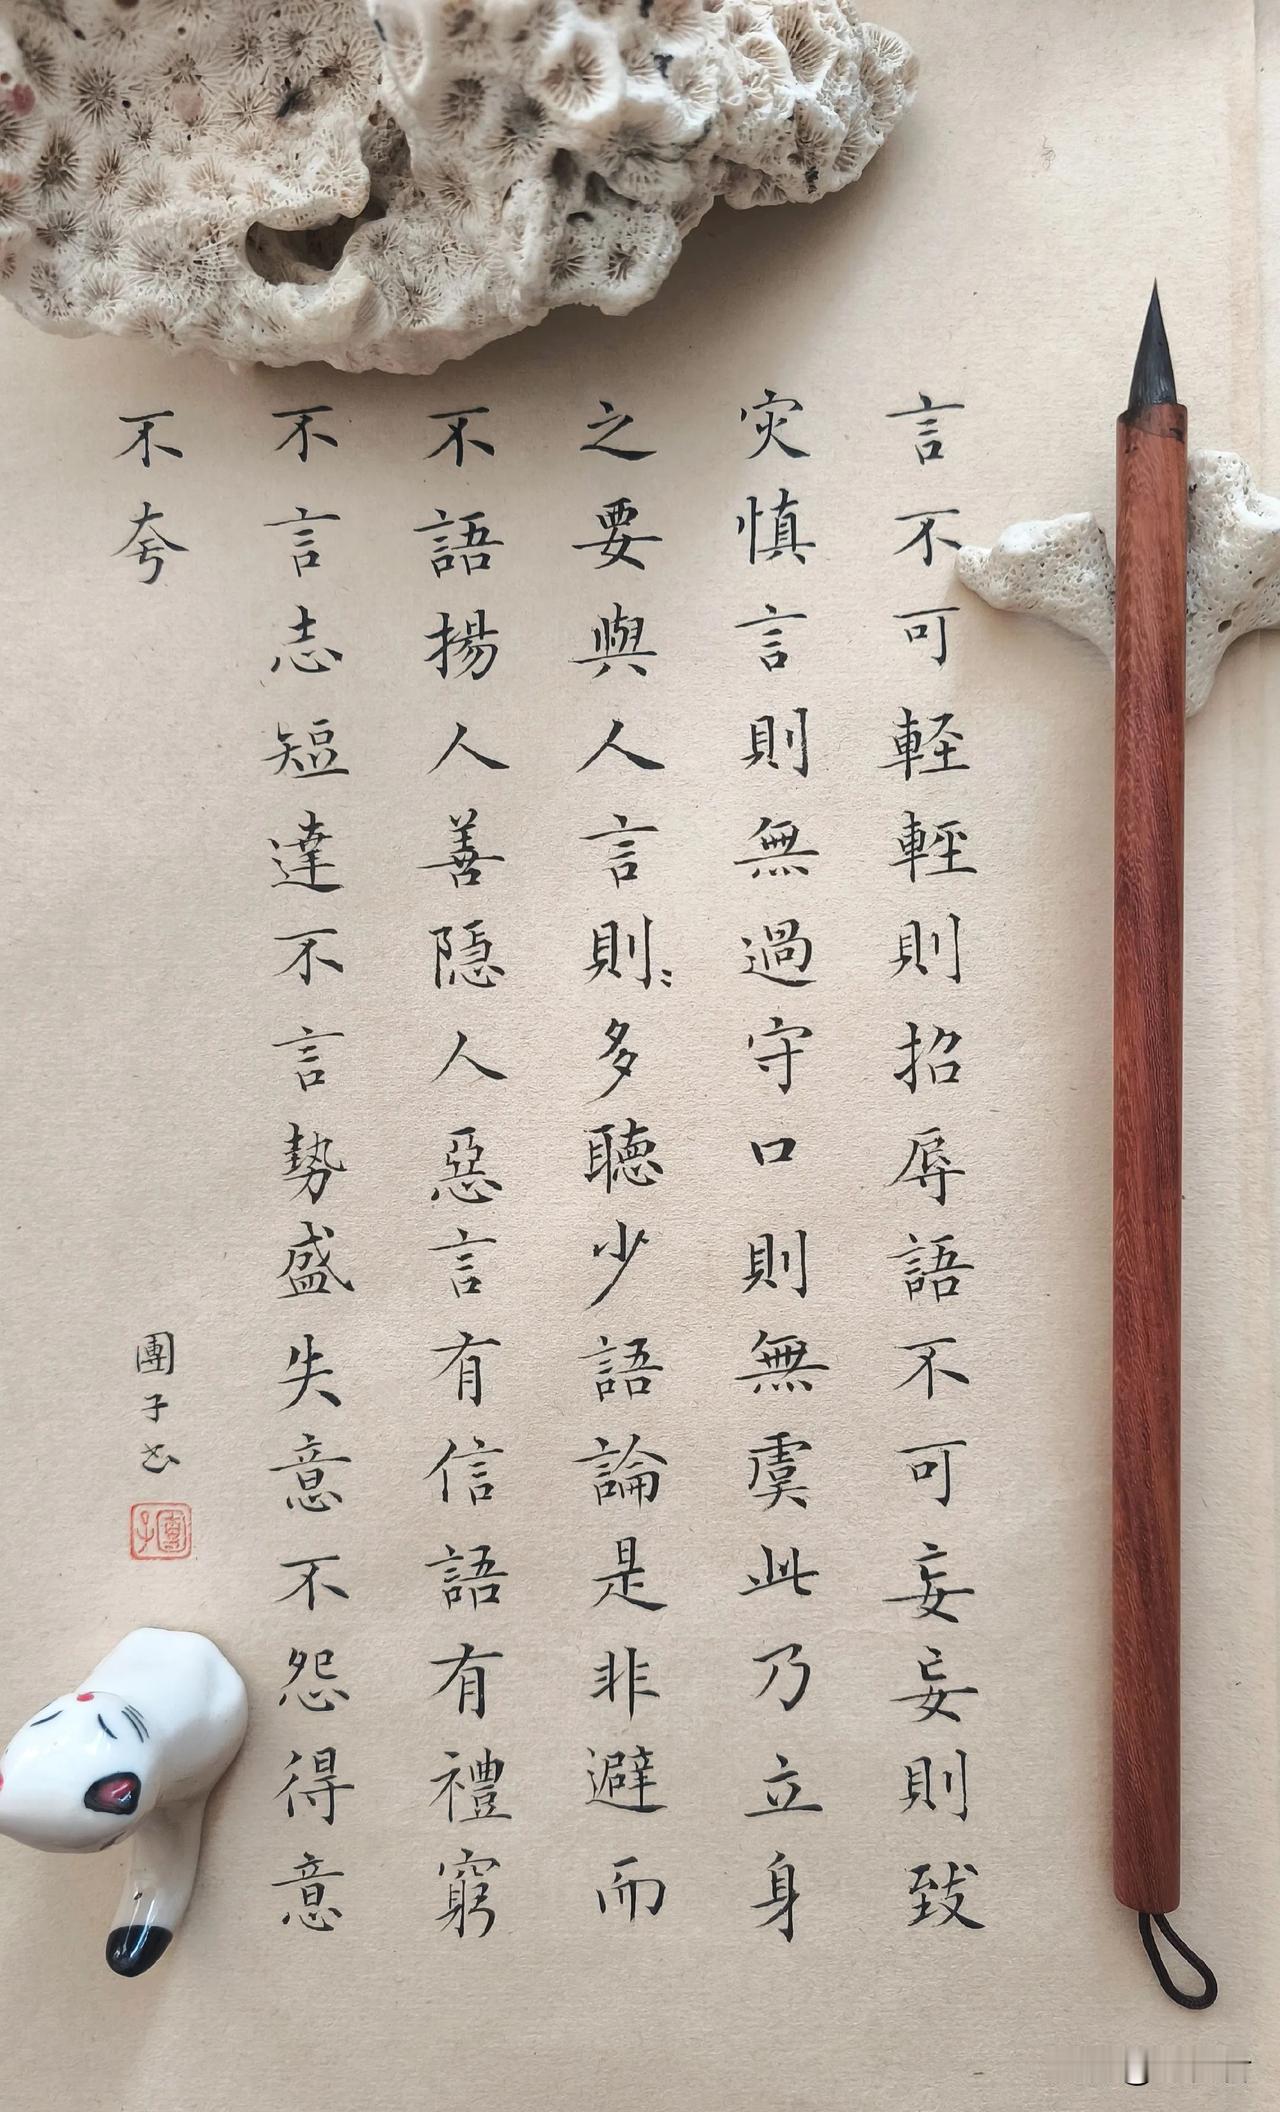 言不可軽輕則招辱語不可妄妄則致
灾慎言則無過守口則無虞此乃立身
之要與人言則〻多聽少語論是非避而
不語揚人善隱人惡言有信語有禮窮
不言志短達不言勢盛失意不怨得意
不夸
團子书
團子